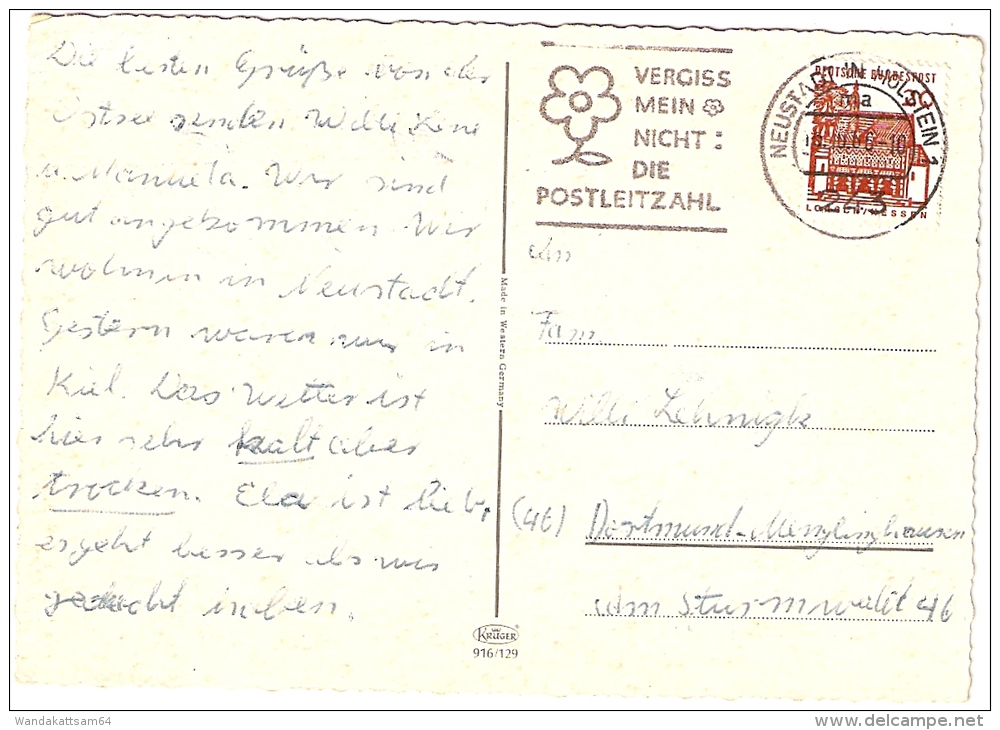 Die besten Grüße von der
Ostsee senden Willi, Lene
u. Manuela. Wir sind
gut angekommen. Wir
wohnen in Neustadt.
Gestern waren wir in
Kiel. Das Wetter ist
hier sehr kalt aber
trocken. Ela ist lieb,
es geht besser als wir
gedacht haben.
Made in Western Germany
KRÜGER
916/129
VERGISS
MEIN
NICHT:
DIE
POSTLEITZAHL
NEUSTADT IN HOLSTEIN 1
ma
243
DEUTSCHE BUNDESPOST
LORSCH/HESSEN
An
Fam.
Willi Lehnigk
(46) Dortmund-Menglinghausen
Am Sturmwald 46
Wandakattsam64
delcampe.net